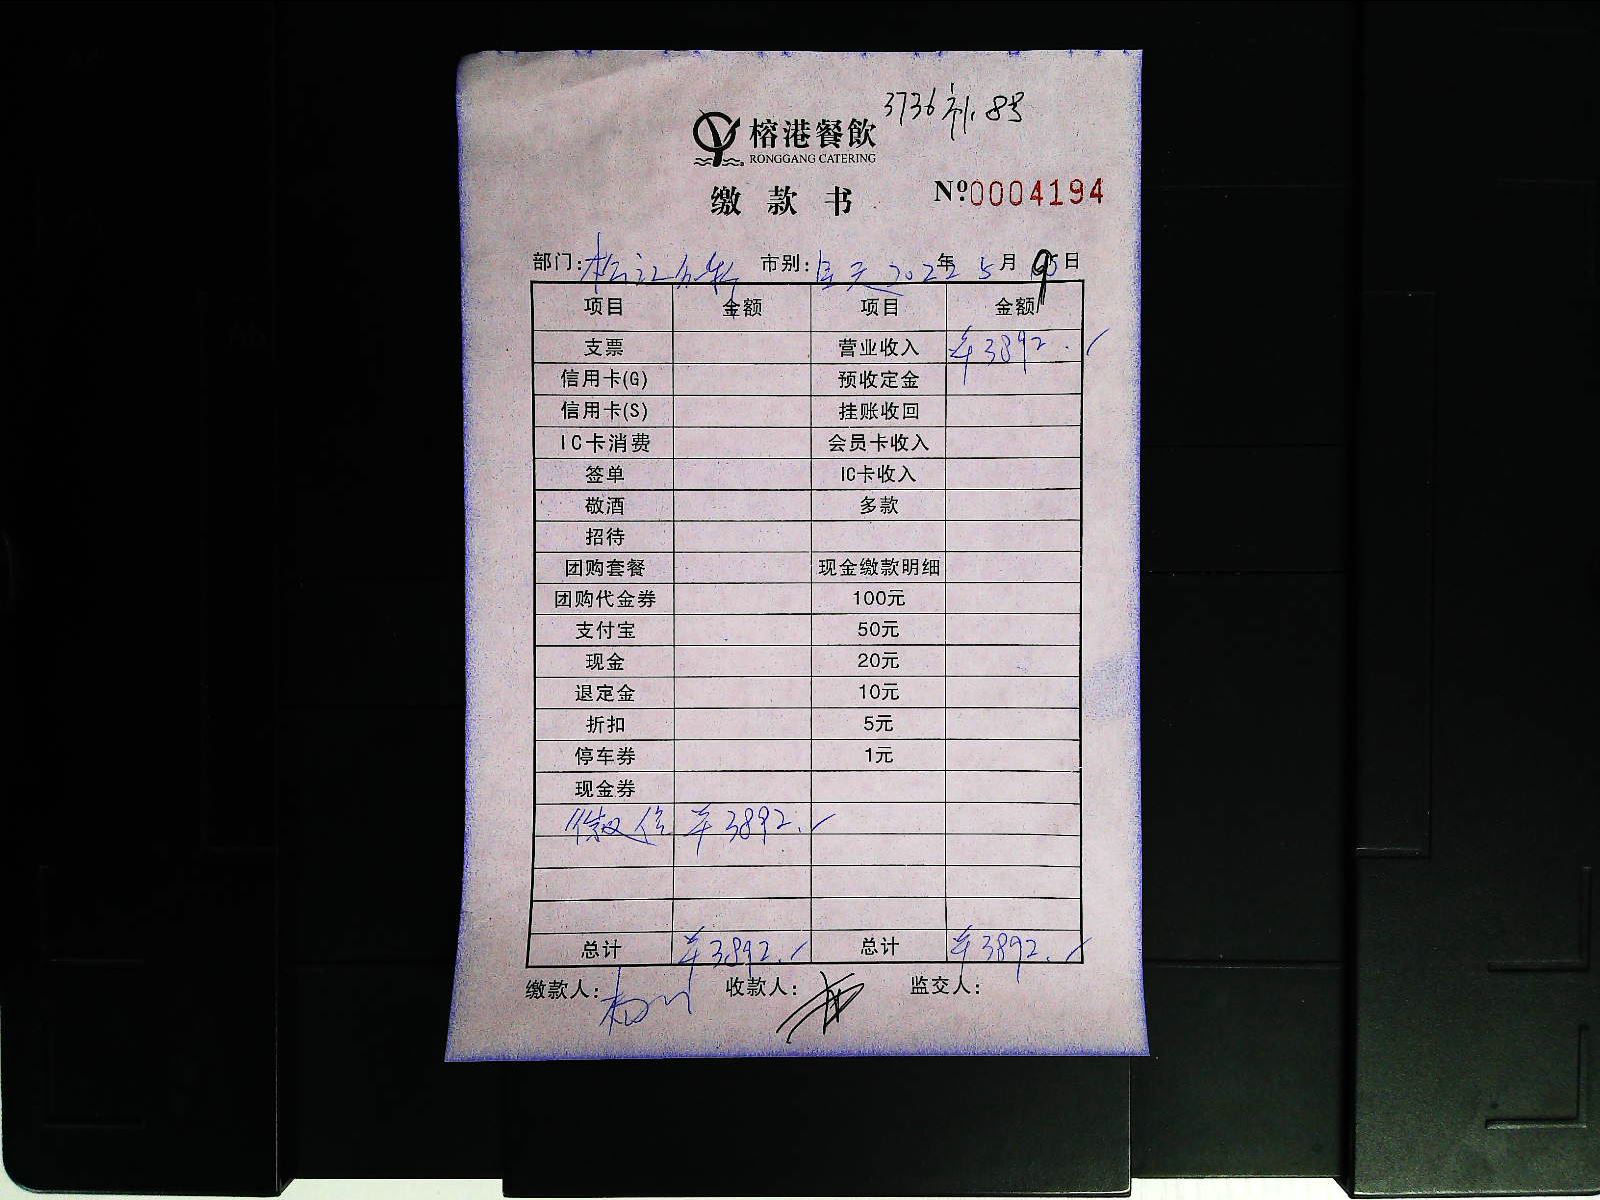 3736补.8号
榕港餐飲
RONGGANG CATERING
缴款书 Nº0004194
部门: 市别:全天 2022年5月9日
项目 金额 项目 金额
支票 营业收入 ¥3892.
信用卡(G) 预收定金
信用卡(S) 挂账收回
IC卡消费 会员卡收入
签单 IC卡收入
敬酒 多款
招待
团购套餐 现金缴款明细
团购代金券 100元
支付宝 50元
现金 20元
退定金 10元
折扣 5元
停车券 1元
现金券
微信 ¥3892.
总计 ¥3892. 总计 ¥3892.
缴款人: 收款人: 监交人: